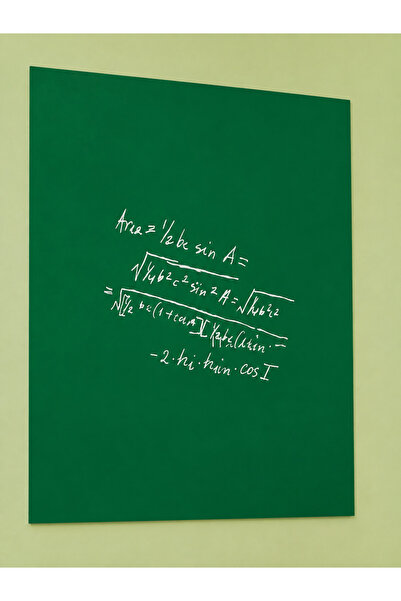 Area = 1/2 bc sin A =
√1/4 b²c² sin² A = √1/4 b²c²
= √[1/2 bc(1+cos A][1/2bc(1
-2·hi·hin·cos I